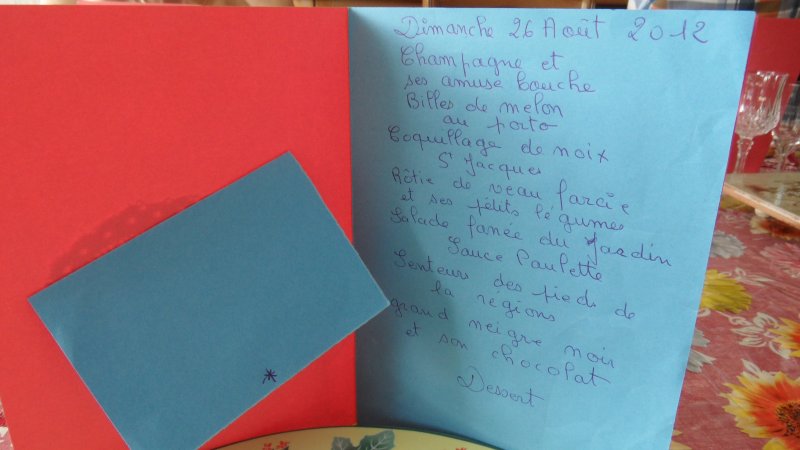 Dimanche 26 Août 2012
Champagne et
ses amuse bouche
Billes de melon
au porto
Coquillage de noix
St Jacques
Rôtie de veau farcie
et ses pétits légumes
Salade fanée du Jardin
Sauce Paulette
Senteurs des pieds de
la régions
grand neigre noir
et son chocolat
Dessert